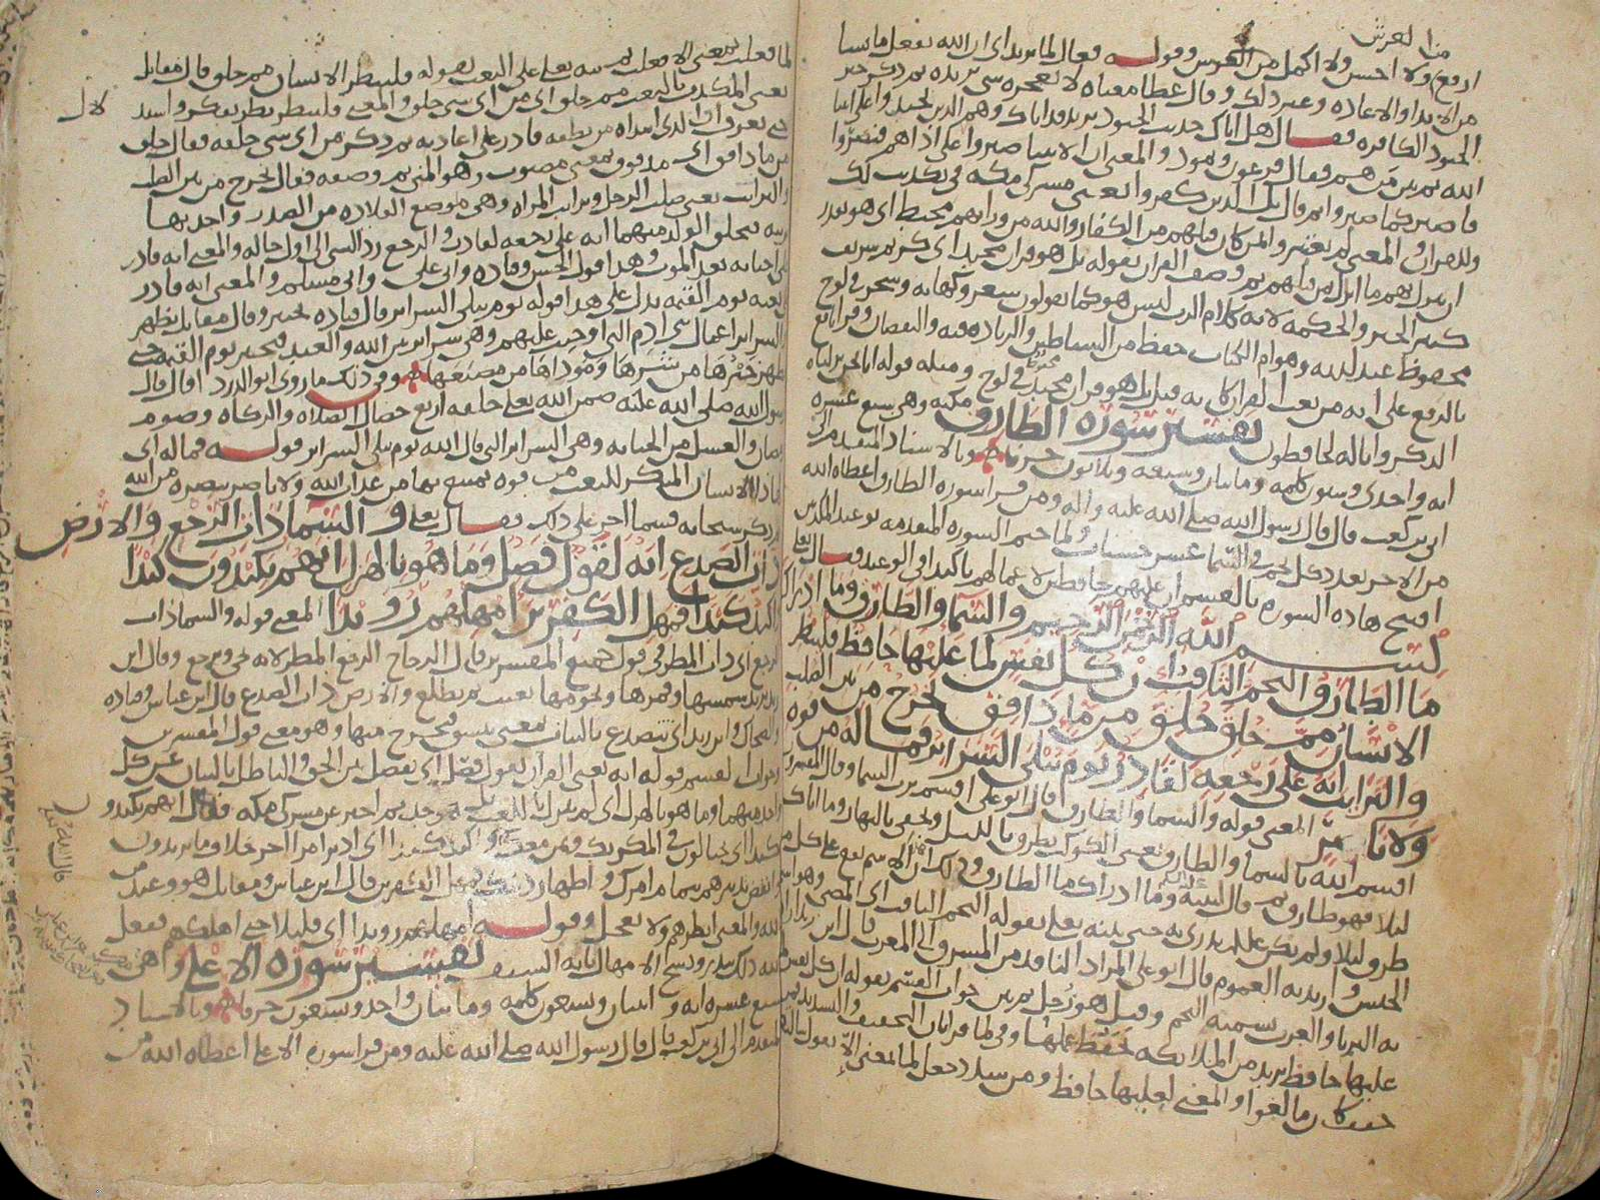 من العرش
ارفع ولا احسن ولا اكمل من العرش وقوله فعال لما يريد اى ان الله يفعل ما يشا
من الابدا والاعاده وغير ذلك وقال عطا معناه لا يعجزه شى يريده ثم ذكر خبر
الجنود الكافره فقال هل اتاك حديث الجنود يريد قد اتاك وهم الذين
الله ثم بين من هم فقال فرعون وثمود والمعنى ان الانبيا صبروا على اذاهم
فاصبر كما صبروا ثم قال بل الذين كفروا يعنى مشركى مكه فى تكذيب لك
وللقران والمعنى لم يعتبروا بمن كان قبلهم من الكفار والله من ورايهم محيط اى هو يقدر
ان ينزل بهم ما انزل بمن قبلهم ثم وصف القران بقوله بل هو قران مجيد اى كريم شريف
كثير الخير والحكمه لانه كلام الرب ليس هو كما يقولون شعر وكهانه وسحر فى لوح
محفوظ عند الله وهو ام الكتاب حفظ من الشياطين والزياده فيه والنقصان وقرا نافع
بالرفع على انه من نعت القران كانه قيل بل هو قران مجيد محفوظ فى لوح ومثله قوله انا نحن نزلنا
الذكر وانا له لحافظون تفسير سوره الطارق مكيه وهى سبع عشره
ايه واحدى وستون كلمه ومايتان وتسعه وثلاثون حرفا وبالاسناد المتقدم الى
ابى بن كعب قال قال رسول الله صلى الله عليه واله ومن قرا سوره الطارق اعطاه الله
من الاجر بعدد كل نجم فى السما عشر حسنات ولما ختم السوره المتقدمه بوعيد المكذبين
افتتح هاذه السوره بالقسم ان عليهم حافظين لاعمالهم تاكيدا فى الوعيد فقال تعلى
بسم الله الرحمن الرحيم والسما والطارق وما ادراك
ما الطارق النجم الثاقب ان كل نفس لما عليها حافظ فلينظر
الانسان مم خلق خلق من ما دافق يخرج من بين الصلب
والترايب انه على رجعه لقادر يوم تبلى السراير فما له من قوه
ولا ناصر المعنى قوله والسما والطارق قال ابو على اقسم برب السما وقال المفسرون
اقسم الله بالسما والطارق يعنى الكوكب يطرق بالليل ويخفى بالنهار وما اتاك
ليلا فهو طارق ثم قال لنبيه وما ادراك ما الطارق وذلك ان الاسم يقع على كل من
طرق ليلا ولم يكن على يدرى به حتى بينه تعلى بقوله النجم الثاقب اى المضى
الحسن واريد به العموم قال ابو على المراد الناقد من المشرق الى المغرب قال ابن زيد اراد
به الثريا والعرب تسميه النجم وقيل هو زحل ثم بين جواب القسم بقوله ان كل نفس لما
عليها حافظ يريد من الملايكه تحفظ عملها وفى لما قرايتان التخفيف والتشديد
خفف كان ما لغوا والمعنى لعليها حافظ ومن شدد جعل لما بمعنى الا يقول
لما فعلت بمعنى الا فعلت ثم نبه تعلى على البعث بقوله فلينظر الانسان مم خلق قال مقاتل
يعنى المكذب بالبعث مم خلق اى من اى شى خلق والمعنى فلينظر نظر تفكر واستد
لال
حتى يعرف ان الذى ابتداه من نطفه قادر على اعادته ثم ذكر من اى شى خلقه فقال خلق
من ما دافق اى مدفوق بمعنى مصبوب وهو المنى ثم وصفه فقال يخرج من بين الصلب
والترايب يعنى صلب الرجل وترايب المراه وهى موضع القلاده من الصدر واحدتها
تريبه فخلق الولد منهما انه على رجعه لقادر والرجع رد الشى الى اول حاله والمعنى انه قادر
على احيايه بعد الموت وهذا قول الحسن وقتاده وابى على وابى مسلم والمعنى انه قادر
يوم القيمه يدل على هذا قوله يوم تبلى السراير قال قتاده تختبر وقال مقاتل تظهر
السراير اعمال بنى ادم التى اوجبت عليهم وهى سراير بين الله والعبد فتختبر يوم القيمه حتى
يظهر خيرها من شرها ومودّاها من مضيعها وفى ذلك ما روى ابو الدردا قال قال
رسول الله صلى الله عليه ضمن الله تعلى خلقه اربع خصال الصلاه والزكاه وصوم
رمضان والغسل من الجنابه وهى السراير التى قال الله يوم تبلى السراير قوله فما له اى
فما لهاذا الانسان المنكر للبعث من قوه يمتنع بها من عذاب الله ولا ناصر ينصره من الله
ثم ذكر سبحانه قسما اخر على ذلك فقال تعلى والسما ذات الرجع والارض
ذات الصدع انه لقول فصل وما هو بالهزل انهم يكيدون كيدا
واكيد كيدا فمهل الكفرين امهلهم رويدا المعنى قوله والسما ذات
الرجع اى ذات المطر فى قول جميع المفسرين قال الزجاج الرجع المطر لانه يجى ويرجع وقال ابن
زيد يريد شمسها وقمرها ونجومها تغيب ثم تطلع والارض ذات الصدع قال ابن عباس وقتاده
والضحاك وابن زيد اى تتصدع بالنبات بمعنى ينشق فيخرج منها وهو معنى قول المفسرين
جواب القسم قوله انه يعنى القران لقول فصل اى يفصل بين الحق والباطل بالبيان عن كل
واحد منهما وما هو بالهزل اى لم ينزل باللعب بل هو جد ثم اخبر عن مشركى مكه فقال انهم يكيدون
كيدا اى يحتالون فى المكر بك وبمن معك واكيد كيدا اى ادبر امرا اخر خلاف ما يريدون
لله والمعنى انظرهم ولا تعجل وقوله امهلهم رويدا اى قليلا حتى اهلكهم ففعل
الله ذلك ببدر ونسخ الامهال بايه السيف تفسير سوره الاعلى وهى
تسع عشره ايه واثنتان وسبعون كلمه ومايتان واحد وسبعون حرفا وبالاسناد
المتقدم الى ابى بن كعب قال قال رسول الله صلى الله عليه ومن قرا سوره الاعلى اعطاه الله من